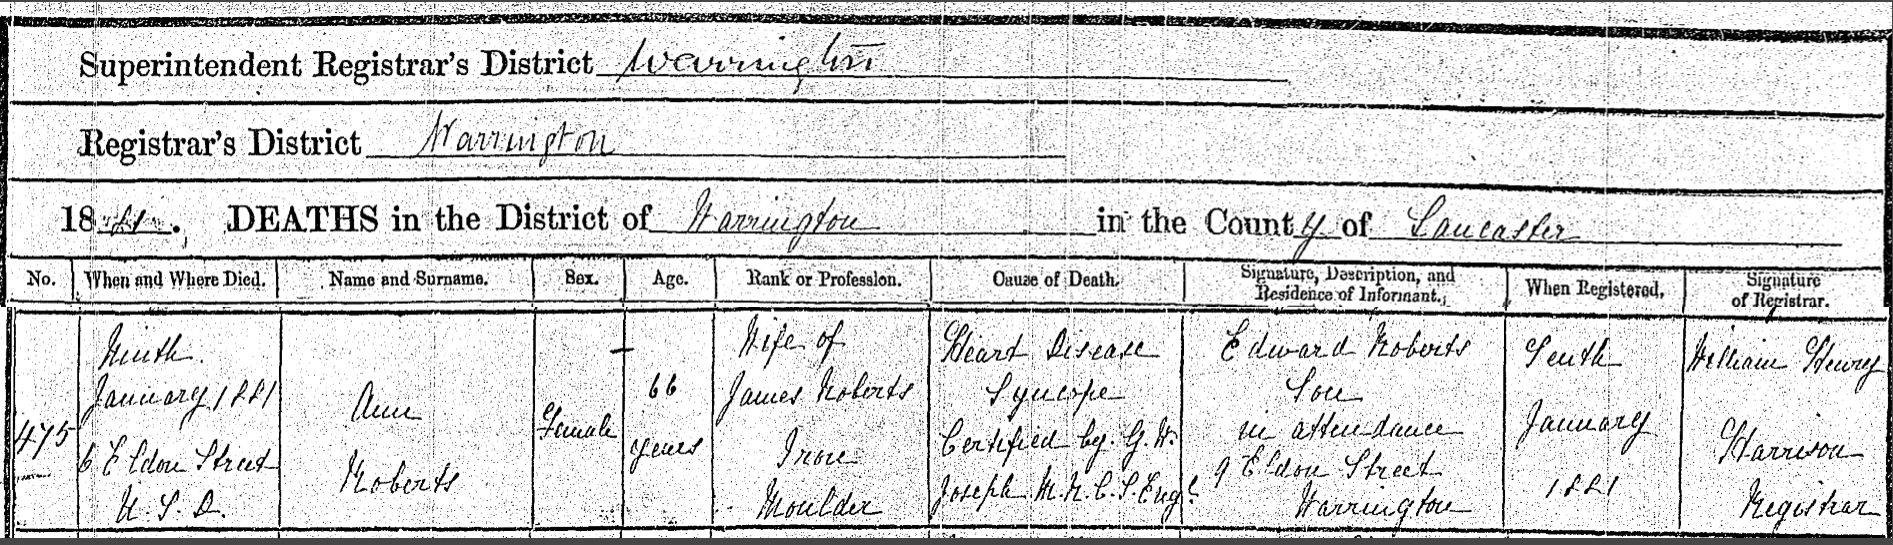 Superintendent Registrar's District Warrington
Registrar's District Warrington
1881. DEATHS in the District of Warrington in the County of Lancaster
No. When and Where Died. Name and Surname. Sex. Age. Rank or Profession. Cause of Death. Signature, Description, and Residence of Informant. When Registered. Signature of Registrar.
475
Ninth
January 1881
6 Eldon Street
U. S. D.
Ann
Roberts
Female
66
years
Wife of
James Roberts
Iron
Moulder
Heart Disease
Syncope
Certified by G. W.
Joseph M.R.C.S. Engd.
Edward Roberts
Son
in attendance
9 Eldon Street
Warrington
Tenth
January
1881
William Henry
Harrison
Registrar